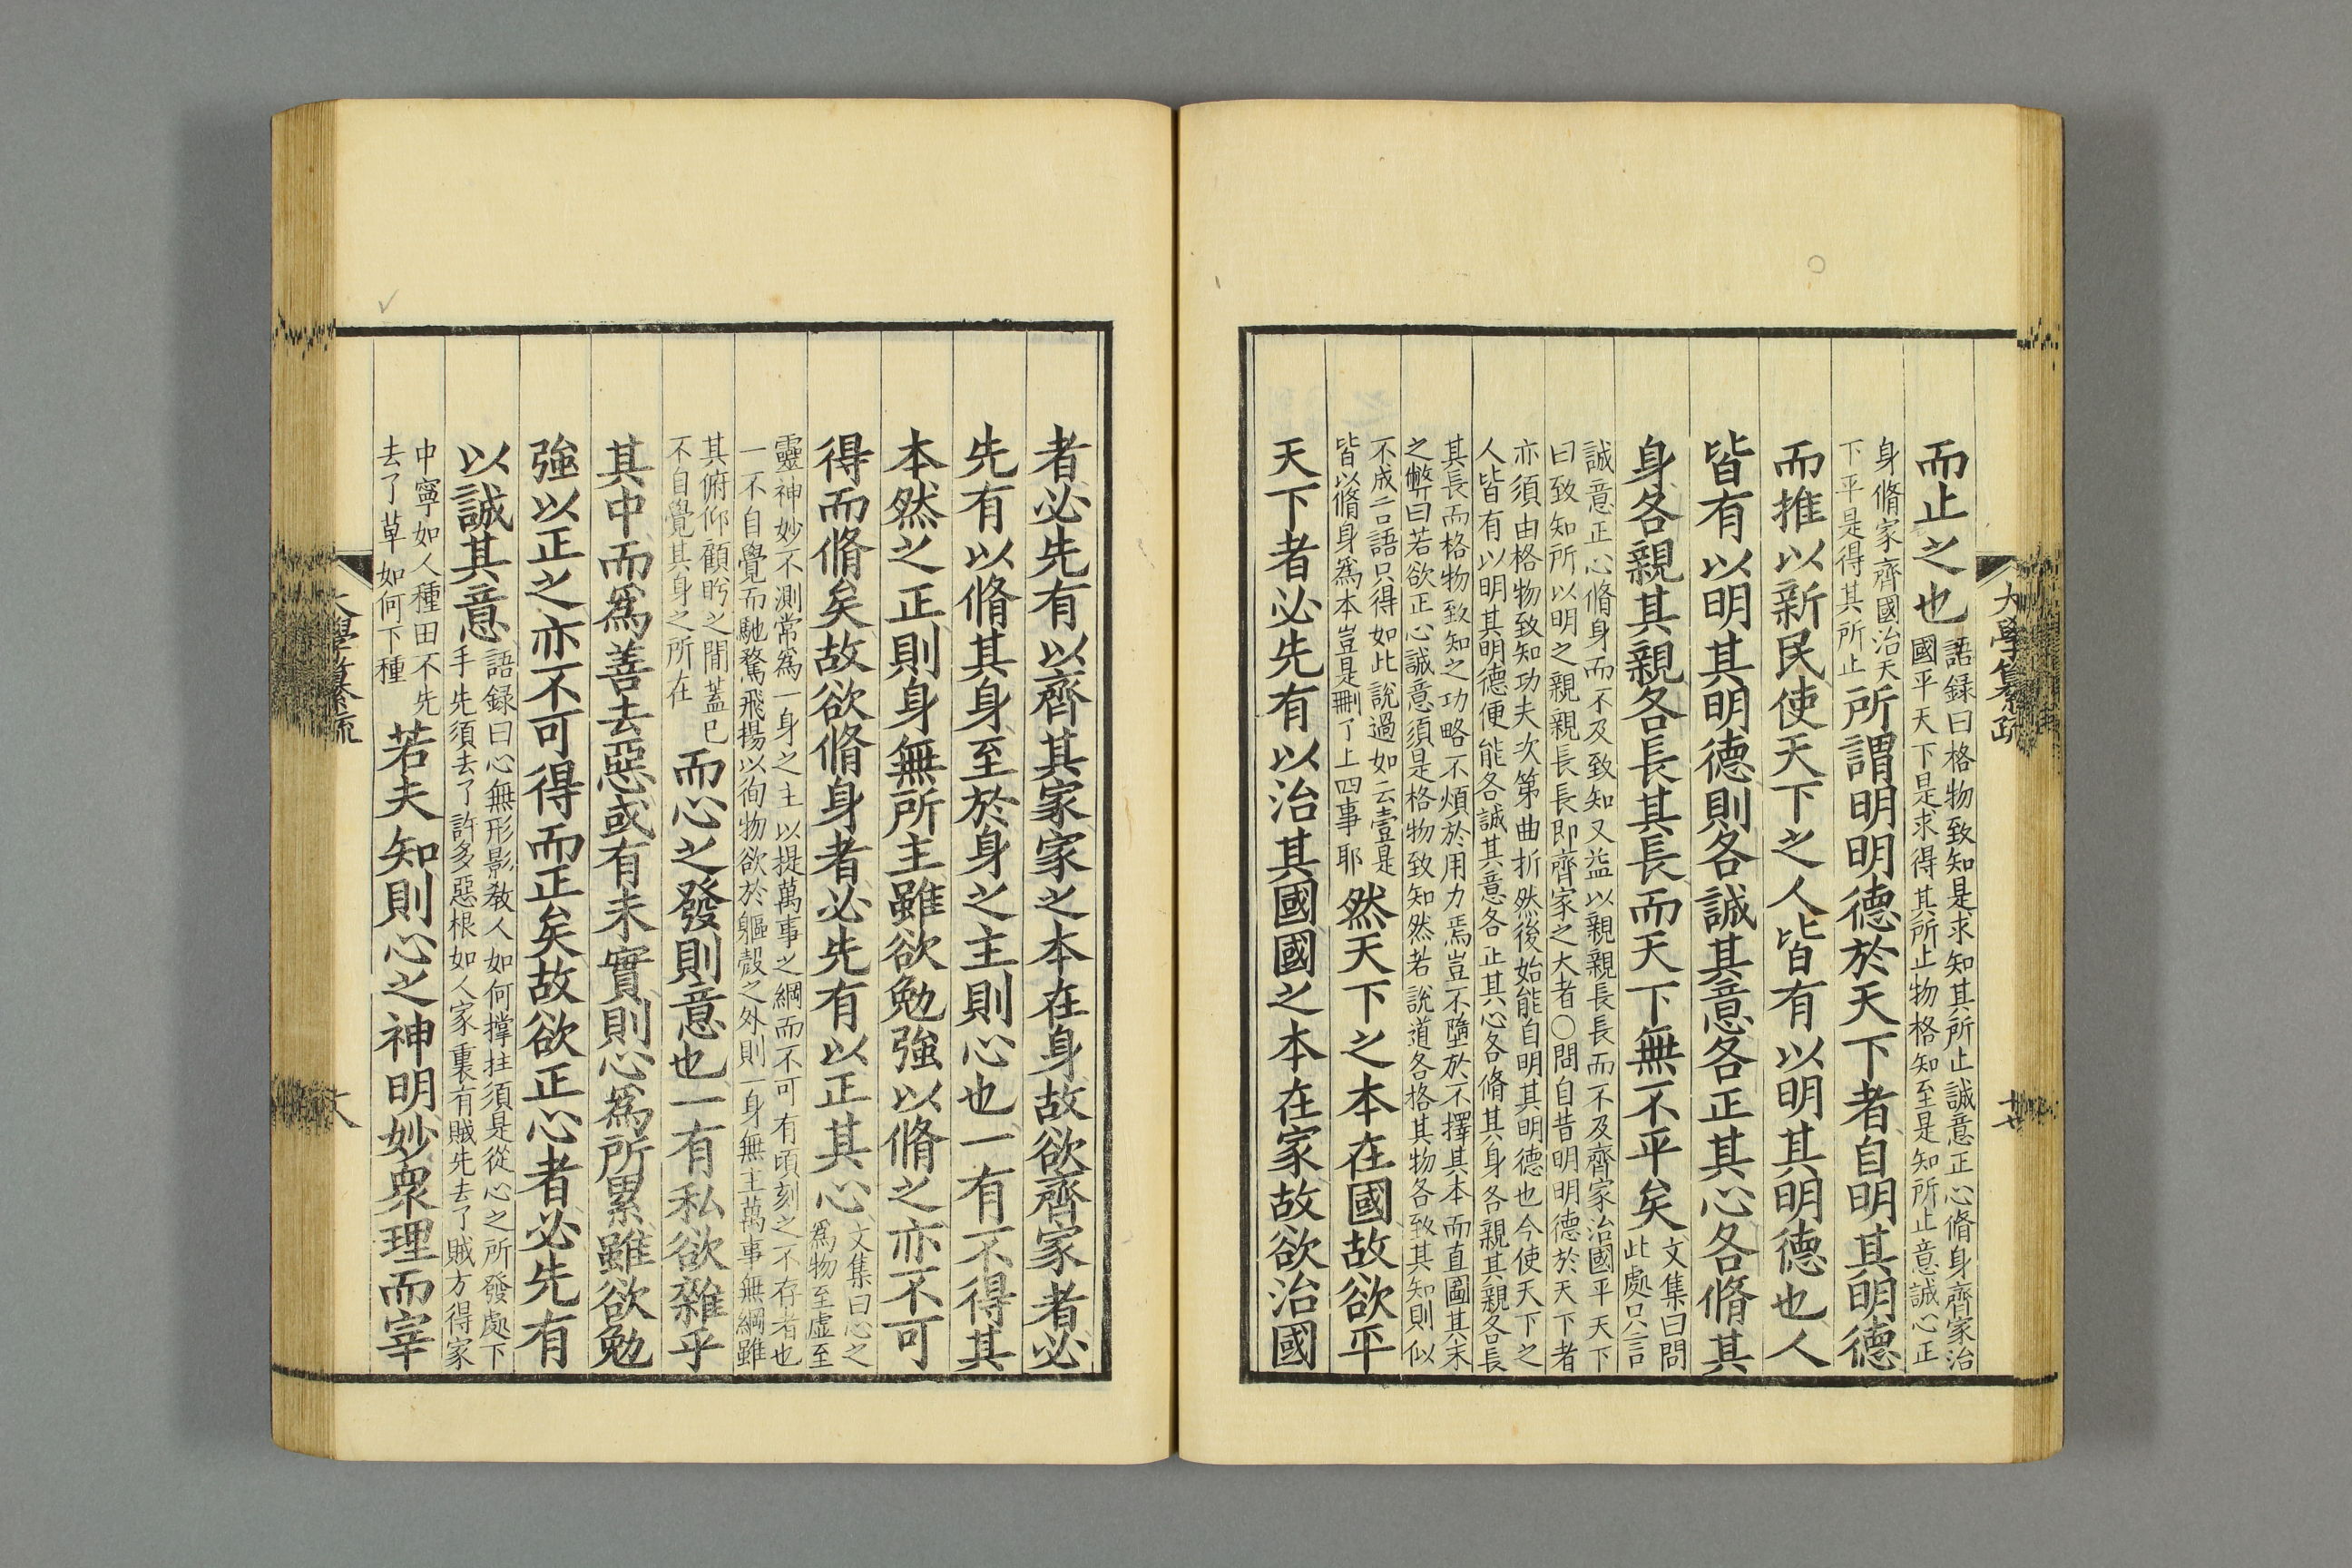 而止之也語録曰格物致知是求知其所止誠意正心脩身齊家治
國平天下是求得其所止物格知至是知所止意誠心正
身脩家齊國治天
下平是得其所止所謂明明德於天下者自明其明德
而推以新民使天下之人皆有以明其明德也人
皆有以明其明德則各誠其意各正其心各脩其
身各親其親各長其長而天下無不平矣文集曰問
此處只言
誠意正心脩身而不及致知又益以親親長長而不及齊家治國平天下
曰致知所以明之親親長長即齊家之大者○問自昔明明德於天下者
亦須由格物致知功夫次第曲折然後始能自明其明德也今使天下之
人皆有以明其明德便能各誠其意各正其心各脩其身各親其親各長
其長而格物致知之功略不煩於用力焉豈不墮於不擇其本而直圖其末
之弊曰若欲正心誠意須是格物致知然若說道各格其物各致其知則似
不成言語只得如此說過如云壹是
皆以脩身爲本豈是刪了上四事耶然天下之本在國故欲平
天下者必先有以治其國國之本在家故欲治國
大學纂疏
廿七
者必先有以齊其家家之本在身故欲齊家者必
先有以脩其身至於身之主則心也一有不得其
本然之正則身無所主雖欲勉強以脩之亦不可
得而脩矣故欲脩身者必先有以正其心文集曰心之
爲物至虛至
靈神妙不測常爲一身之主以提萬事之綱而不可有頃刻之不存者也
一不自覺而馳騖飛揚以徇物欲於軀殼之外則一身無主萬事無綱雖
其俯仰顧盻之間蓋已
不自覺其身之所在而心之發則意也一有私欲雜乎
其中而爲善去惡或有未實則心爲所累雖欲勉
強以正之亦不可得而正矣故欲正心者必先有
以誠其意語録曰心無形影教人如何撑拄須是從心之所發處下
手先須去了許多惡根如人家裏有賊先去了賊方得家
中寧如人種田不先
去了草如何下種若夫知則心之神明妙衆理而宰
大學纂疏